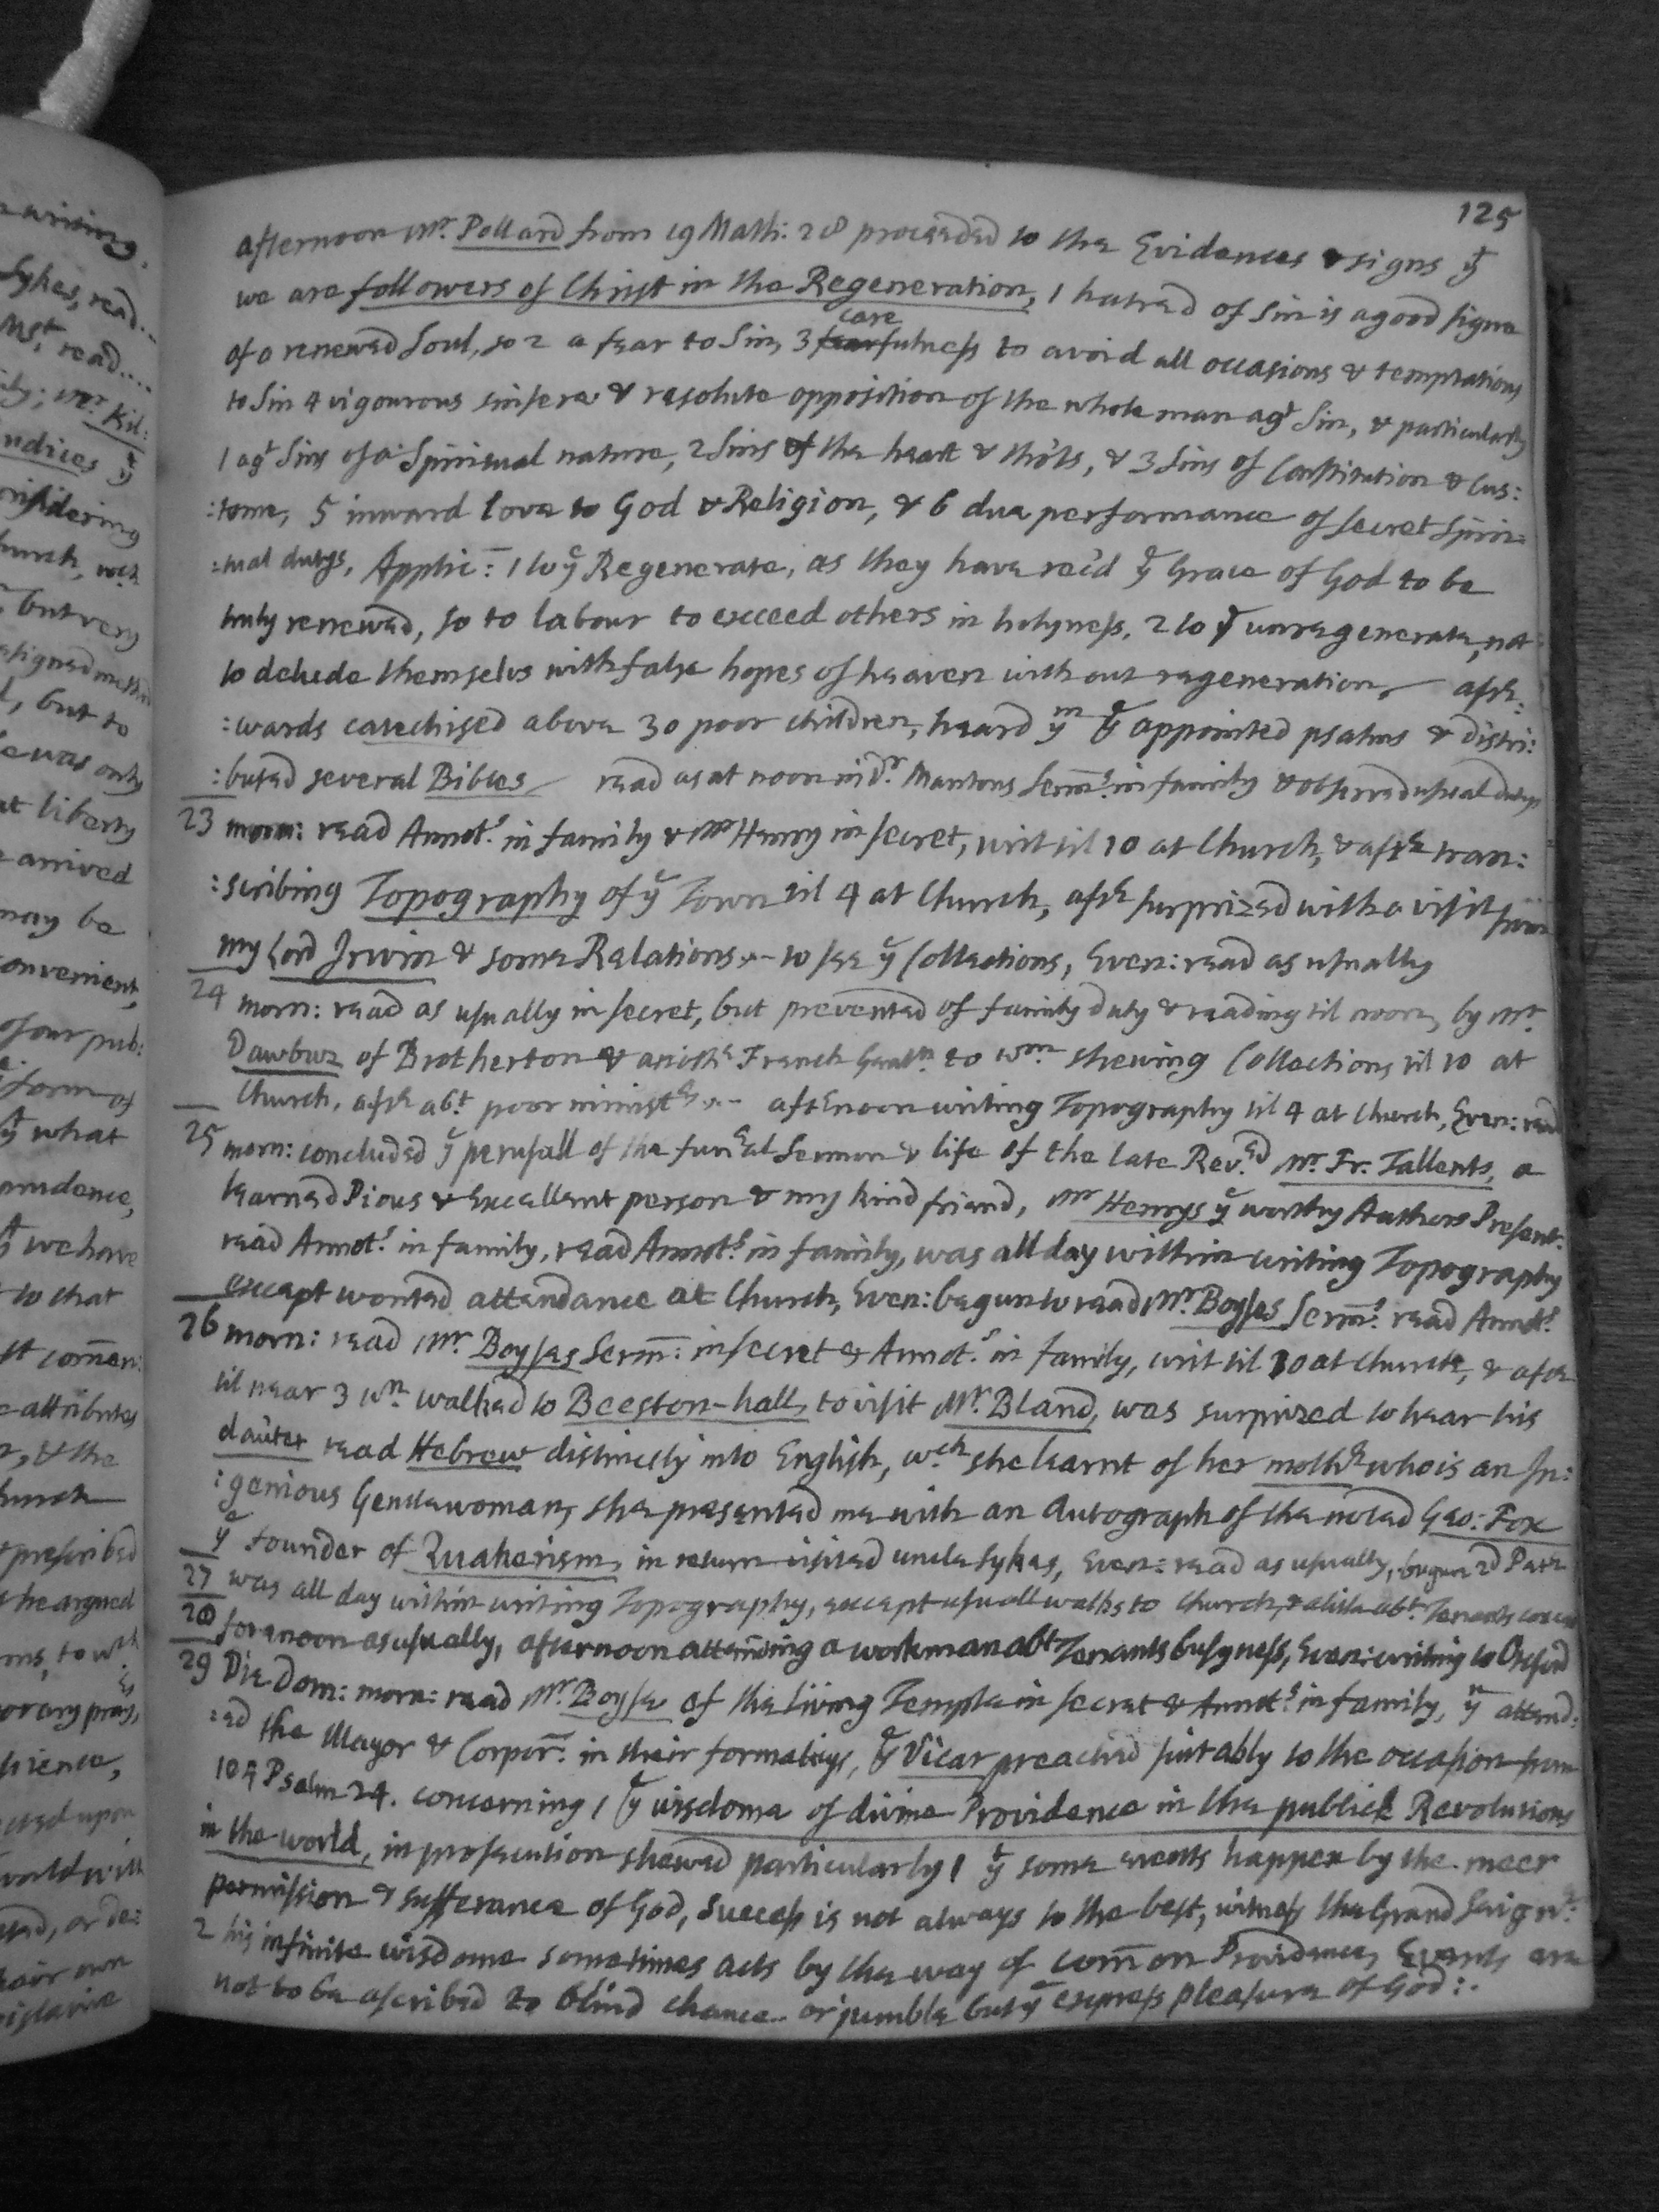 125
afternoon Mr. Pollard from 19 Math: 28 proceeded to the Evidences & signs yt
we are followers of Christ in the Regeneration, 1 hatred of sin is a good signe
of a renewed Soul, so 2 a fear to Sin, 3 fearfulness care to avoid all occasions & temptations
to Sin 4 vigourous sinsere & resolute opposition of the whole man agt Sin, & particularly
1 agt Sins of a Spiritual nature, 2 Sins of the heart & tho'ts, & 3 Sins of Constitution & Cus:
:tome, 5 inward Love to God & Religion, & 6 due performance of secret Spiri=
:tual dutys, Applic: 1 to ye Regenerate, as they have rec'd ye Grace of God to be
truly renewed, so to labour to exceed others in holyness, 2 to ye unregenerate, not
to delude themselvs with false hopes of heaven without regeneration, aftr:
:wards catechised above 30 poor children, heard ym ye appointed psalms & distri:
:buted several Bibles read as at noon in Dr. Mantons Serms. in family & observed usual dutys
23 morn: read Annots. in family & Mr Henry in secret, writ til 10 at Church, & aftr tran:
:scribing Topography of ye Town til 4 at Church, aftr surprized with a visit from
my Lord Irwin & some Relations to see ye Collections, Even: read as usually
24 morn: read as usually in secret, but prevented of family duty & reading til noon, by Mr.
Dawbuz of Brotherton & anothr French to wm. shewing Collections til 10 at
Church, aftr abt. poor ministrs aftrnoon writing Topography til 4 at Church, Even: read
25 morn: concluded ye perusall of the funeral Sermon & life of the late Reved. Mr. Fr. Tallents, a
learned Pious & Excellent person & my kind friend, Mr Henrys ye worthy Authors Present.
read Annots. in family, read Annots. in family, was all day within writing Topography
except wonted attendance at Church, Even: begun to read Mr. Boyses Serms. read Annots.
26 morn: read Mr. Boyses Serm: in secret & Annots. in family, writ til 10 at church, & aftr
til near 3 wn. walked to Beeston-hall, to visit Mr. Bland, was surprized to hear his
dauter read Hebrew distinctly into English, wch. she learnt of her mothr who is an In:
:genious Gentlewoman, she presented me with an Autograph of the noted Geo: Fox
ye founder of Quakerism, in return visited uncle Sykes, Even: read as usually, begun 2d Part
27 was all day within writing Topography, except usuall walks to church, & a little abt. Tenants
28 forenoon as usually, afternoon attending a workman abt Tenants busyness, Even: writing to Oxford
29 Die Dom: morn: read Mr. Boyse of the Living Temple in secret & Annots. in family, yn attend:
:ed the Mayor & Corpor. in their formalitys, ye Vicar preached sutably to the occasion from
104 Psalm 24. concerning 1 ye wisdome of divine Providence in the publick Revolutions
in the world, in prosecution shewed particularly 1 yt some events happen by the meer
permission & sufferance of God, success is not always to the best, witness the Grand Seignr.
2 his infinite wisdome sometimes acts by the way of comon Providence, Events are
not to be ascribed to blind chance or jumble but ye express pleasure of God:.